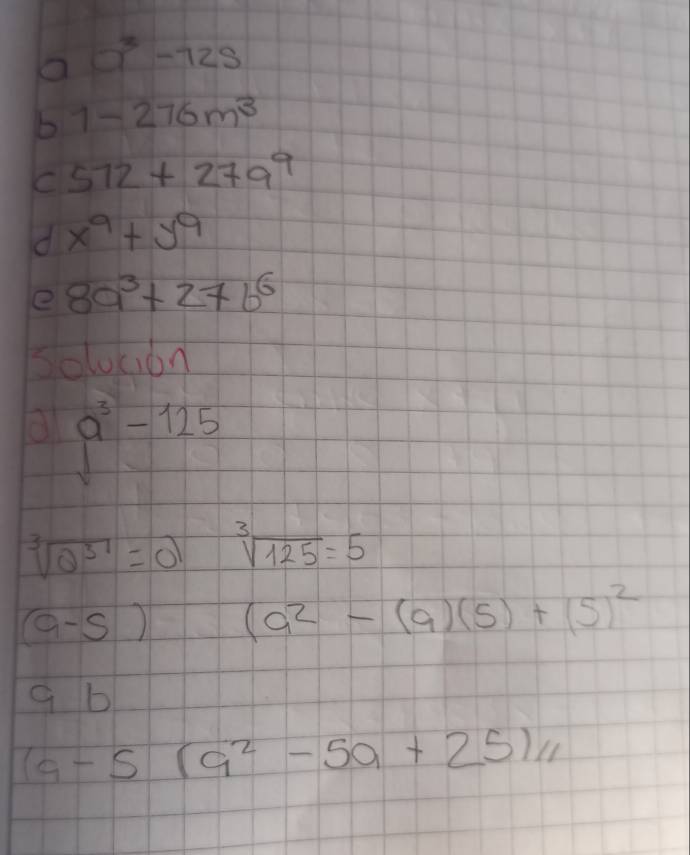 a a³ - 125
b 1 - 216m³
c 512 + 27a⁹
d x⁹ + y⁹
e 8a³ + 27b⁶
Solución
a a³ - 125
↓
∛a³ = a ∛125 = 5
(a - 5) (a² - (a)(5) + (5)²
a b
(a - 5 (a² - 5a + 25)//